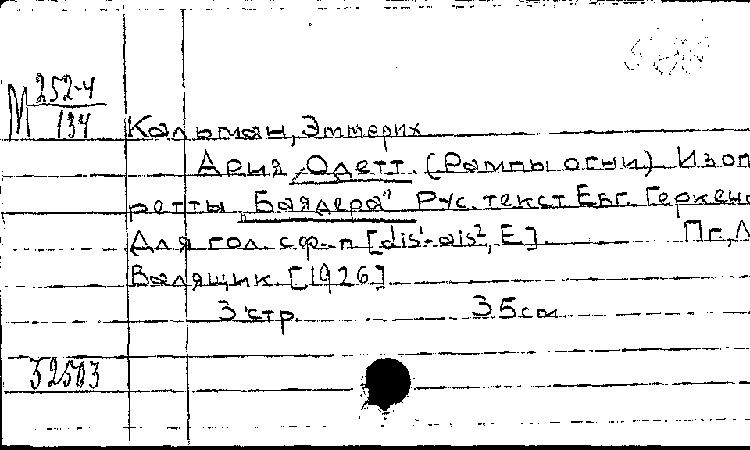 М 252-4
134
Кальман, Эммерих
Ария „Одетт. (Рампы огни). Из оп
ретты „Баядера" Рус. текст Евг. Геркен
Для гол. с ф-п [dis¹-ais², E]. Пг.,
Валящик. [1926].
3 стр. 35 см
32503